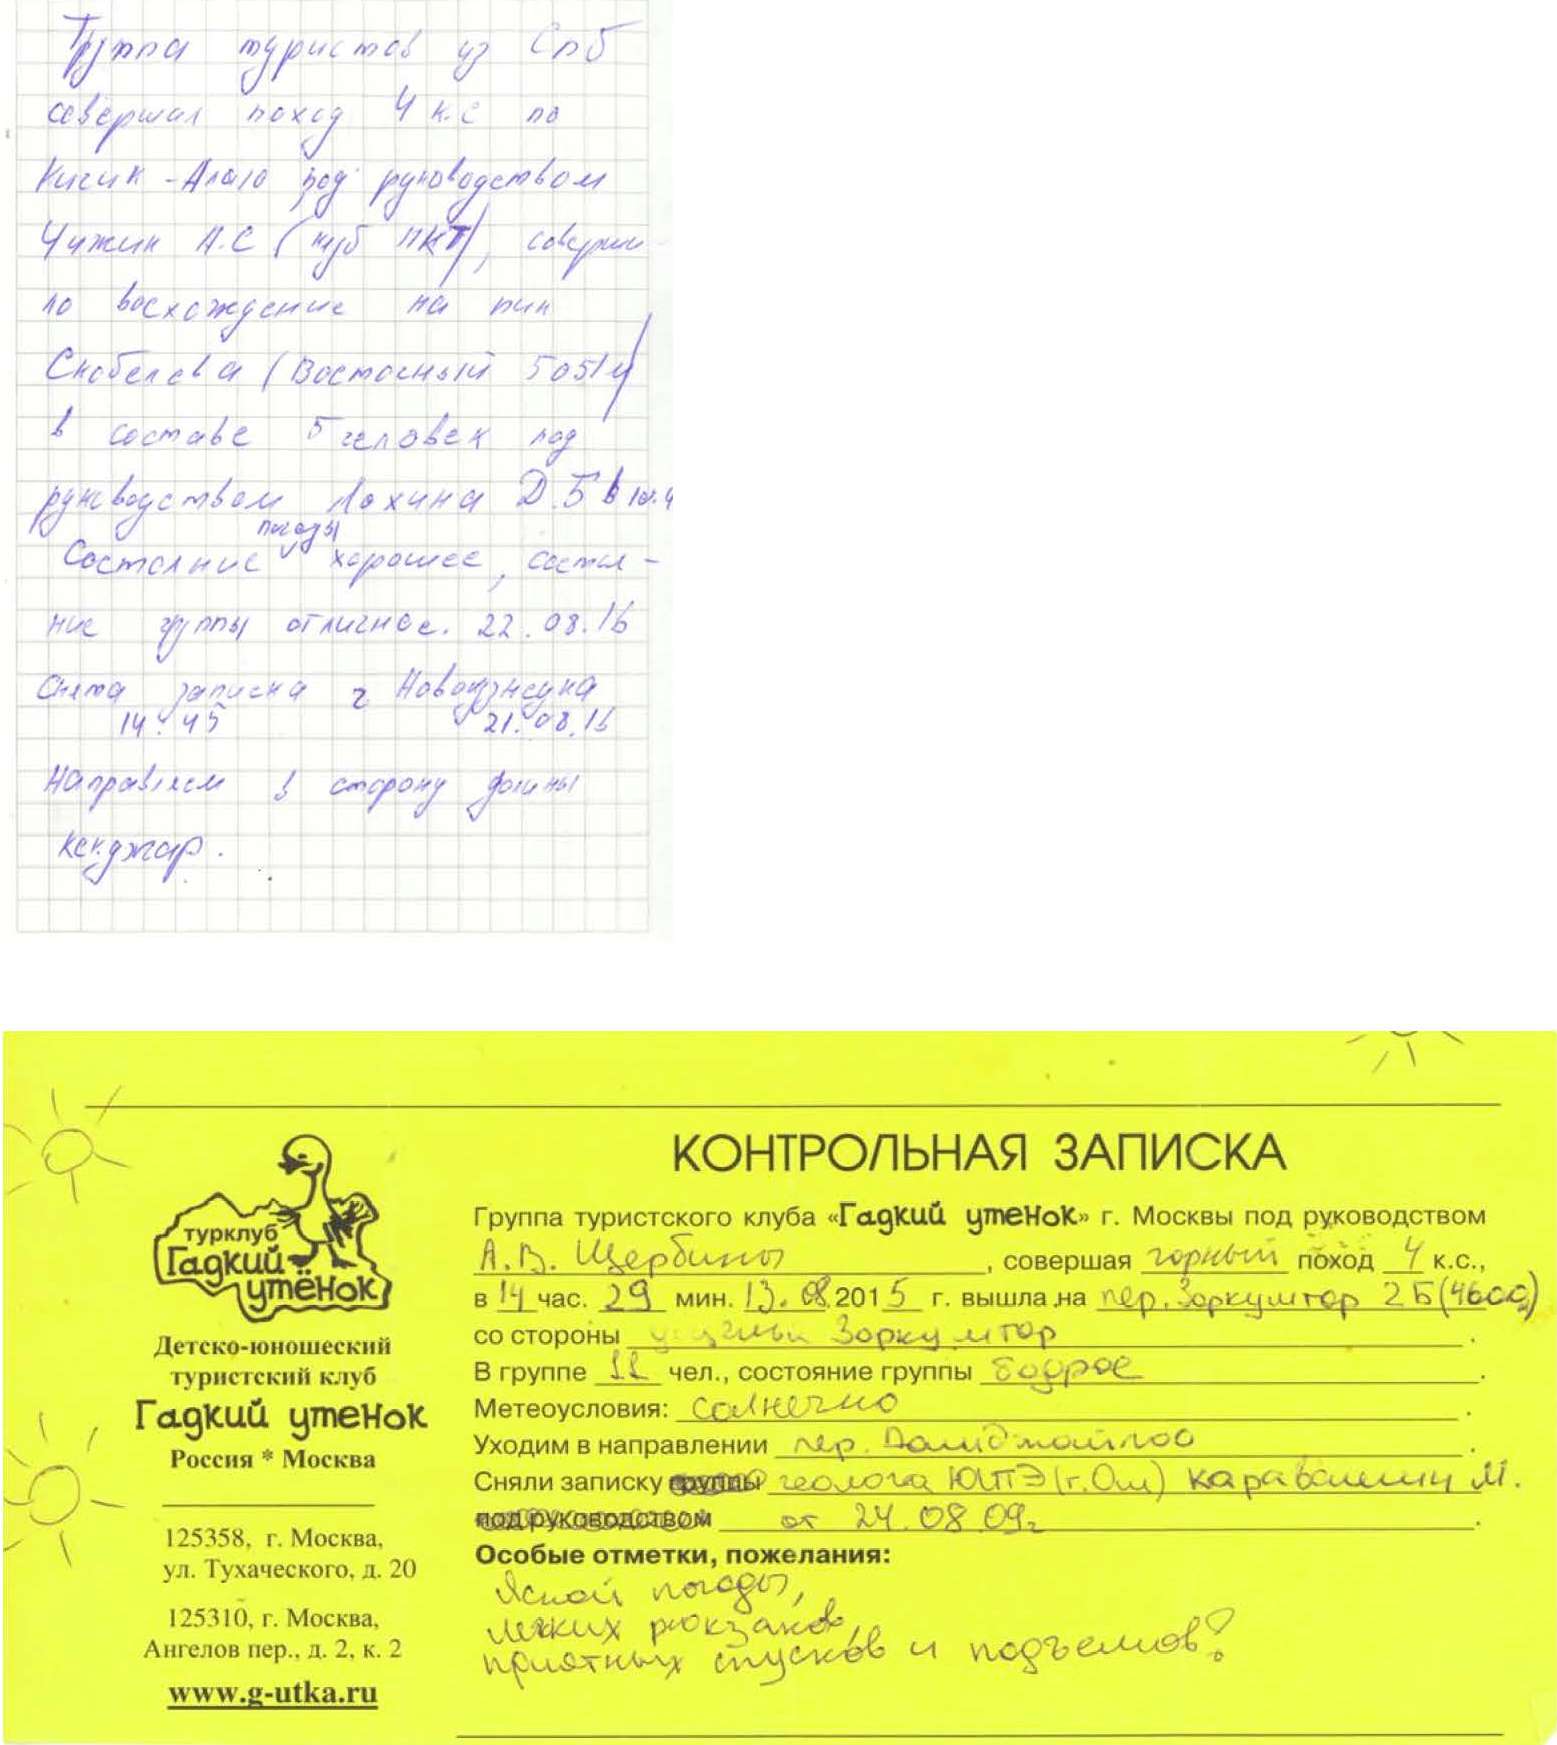 Группа туристов из Спб
совершал поход 4 к.с по
Кичик-Алаю под руководством
Чижик А.С (клуб ПКТ), соверши-
ло восхождение на пик
Скобелева (Восточный 5051м)
в составе 5 человек под
руководством Лохина Д.Б в
погоды
Состояние хорошее, состоя-
ние группы отличное. 22.08.16
Снята записка г Новокузнецка
14:45 21.08.16
Направляем в сторону долины
Кенджар.
КОНТРОЛЬНАЯ ЗАПИСКА
Группа туристского клуба «Гадкий утенок» г. Москвы под руководством
А.В. Щербины, совершая горный поход 4 к.с.,
в 14 час. 29 мин. 13.08.2015 г. вышла на пер. Зоркумтор 2Б (4600)
со стороны Зоркумтор.
В группе 11 чел., состояние группы бодрое.
Метеоусловия: солнечно.
Уходим в направлении пер. Далиджайлоо.
Сняли записку группы геолога ЮКПЭ (г. Ош) Каравашкин М.
под руководством от 24.08.09г.
Особые отметки, пожелания:
Ясной погоды,
легких рюкзаков,
приятных спусков и подъемов!
турклуб
Гадкий
утёнок
Детско-юношеский
туристский клуб
Гадкий утенок
Россия * Москва
125358, г. Москва,
ул. Тухаческого, д. 20
125310, г. Москва,
Ангелов пер., д. 2, к. 2
www.g-utka.ru